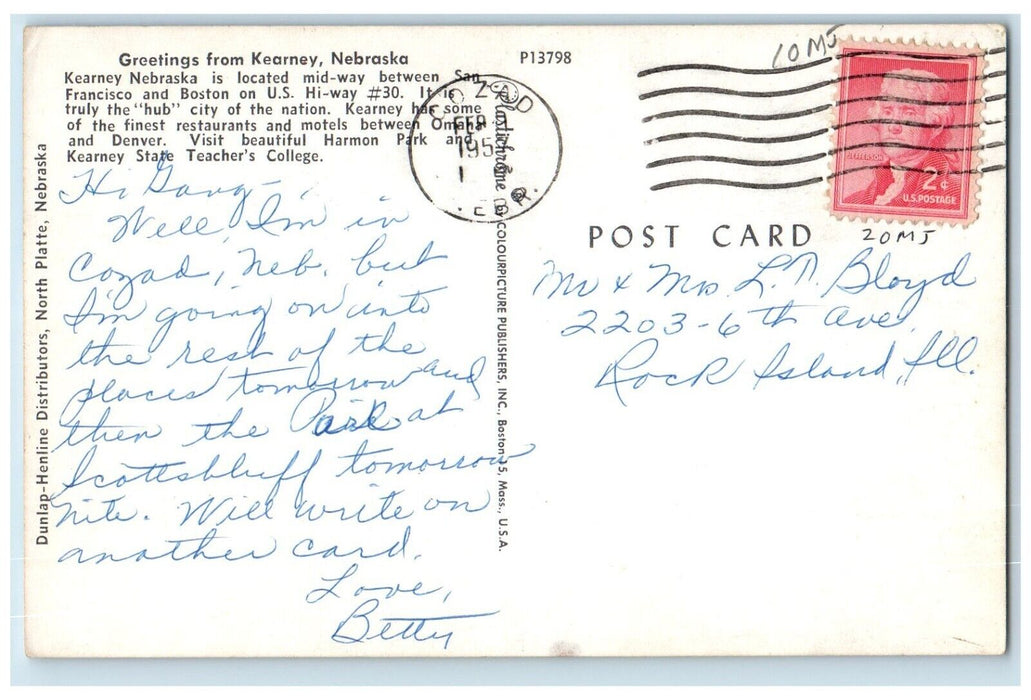 Greetings from Kearney, Nebraska
Kearney Nebraska is located mid-way between San
Francisco and Boston on U.S. Hi-way #30. It is
truly the "hub" city of the nation. Kearney has some
of the finest restaurants and motels between Omaha
and Denver. Visit beautiful Harmon Park and
Kearney State Teacher's College.
P13798
Dunlap-Henline Distributors, North Platte, Nebraska
Hi Gang -
Well, I'm in
Cozad, Neb. but
I'm going on into
the rest of the
places tomorrow and
then the Park at
Scottsbluff tomorrow
nite. Will write on
another card.
Love,
Betty
Plastichrome ®
COLOURPICTURE PUBLISHERS, INC., Boston 15, Mass., U.S.A.
COZAD
FEB
195
1
EBR.
10MJ
JEFFERSON
2¢
U.S. POSTAGE
20MJ
POST CARD
Mr & Mrs L.T. Bloyd
2203-6th Ave.
Rock Island, Ill.